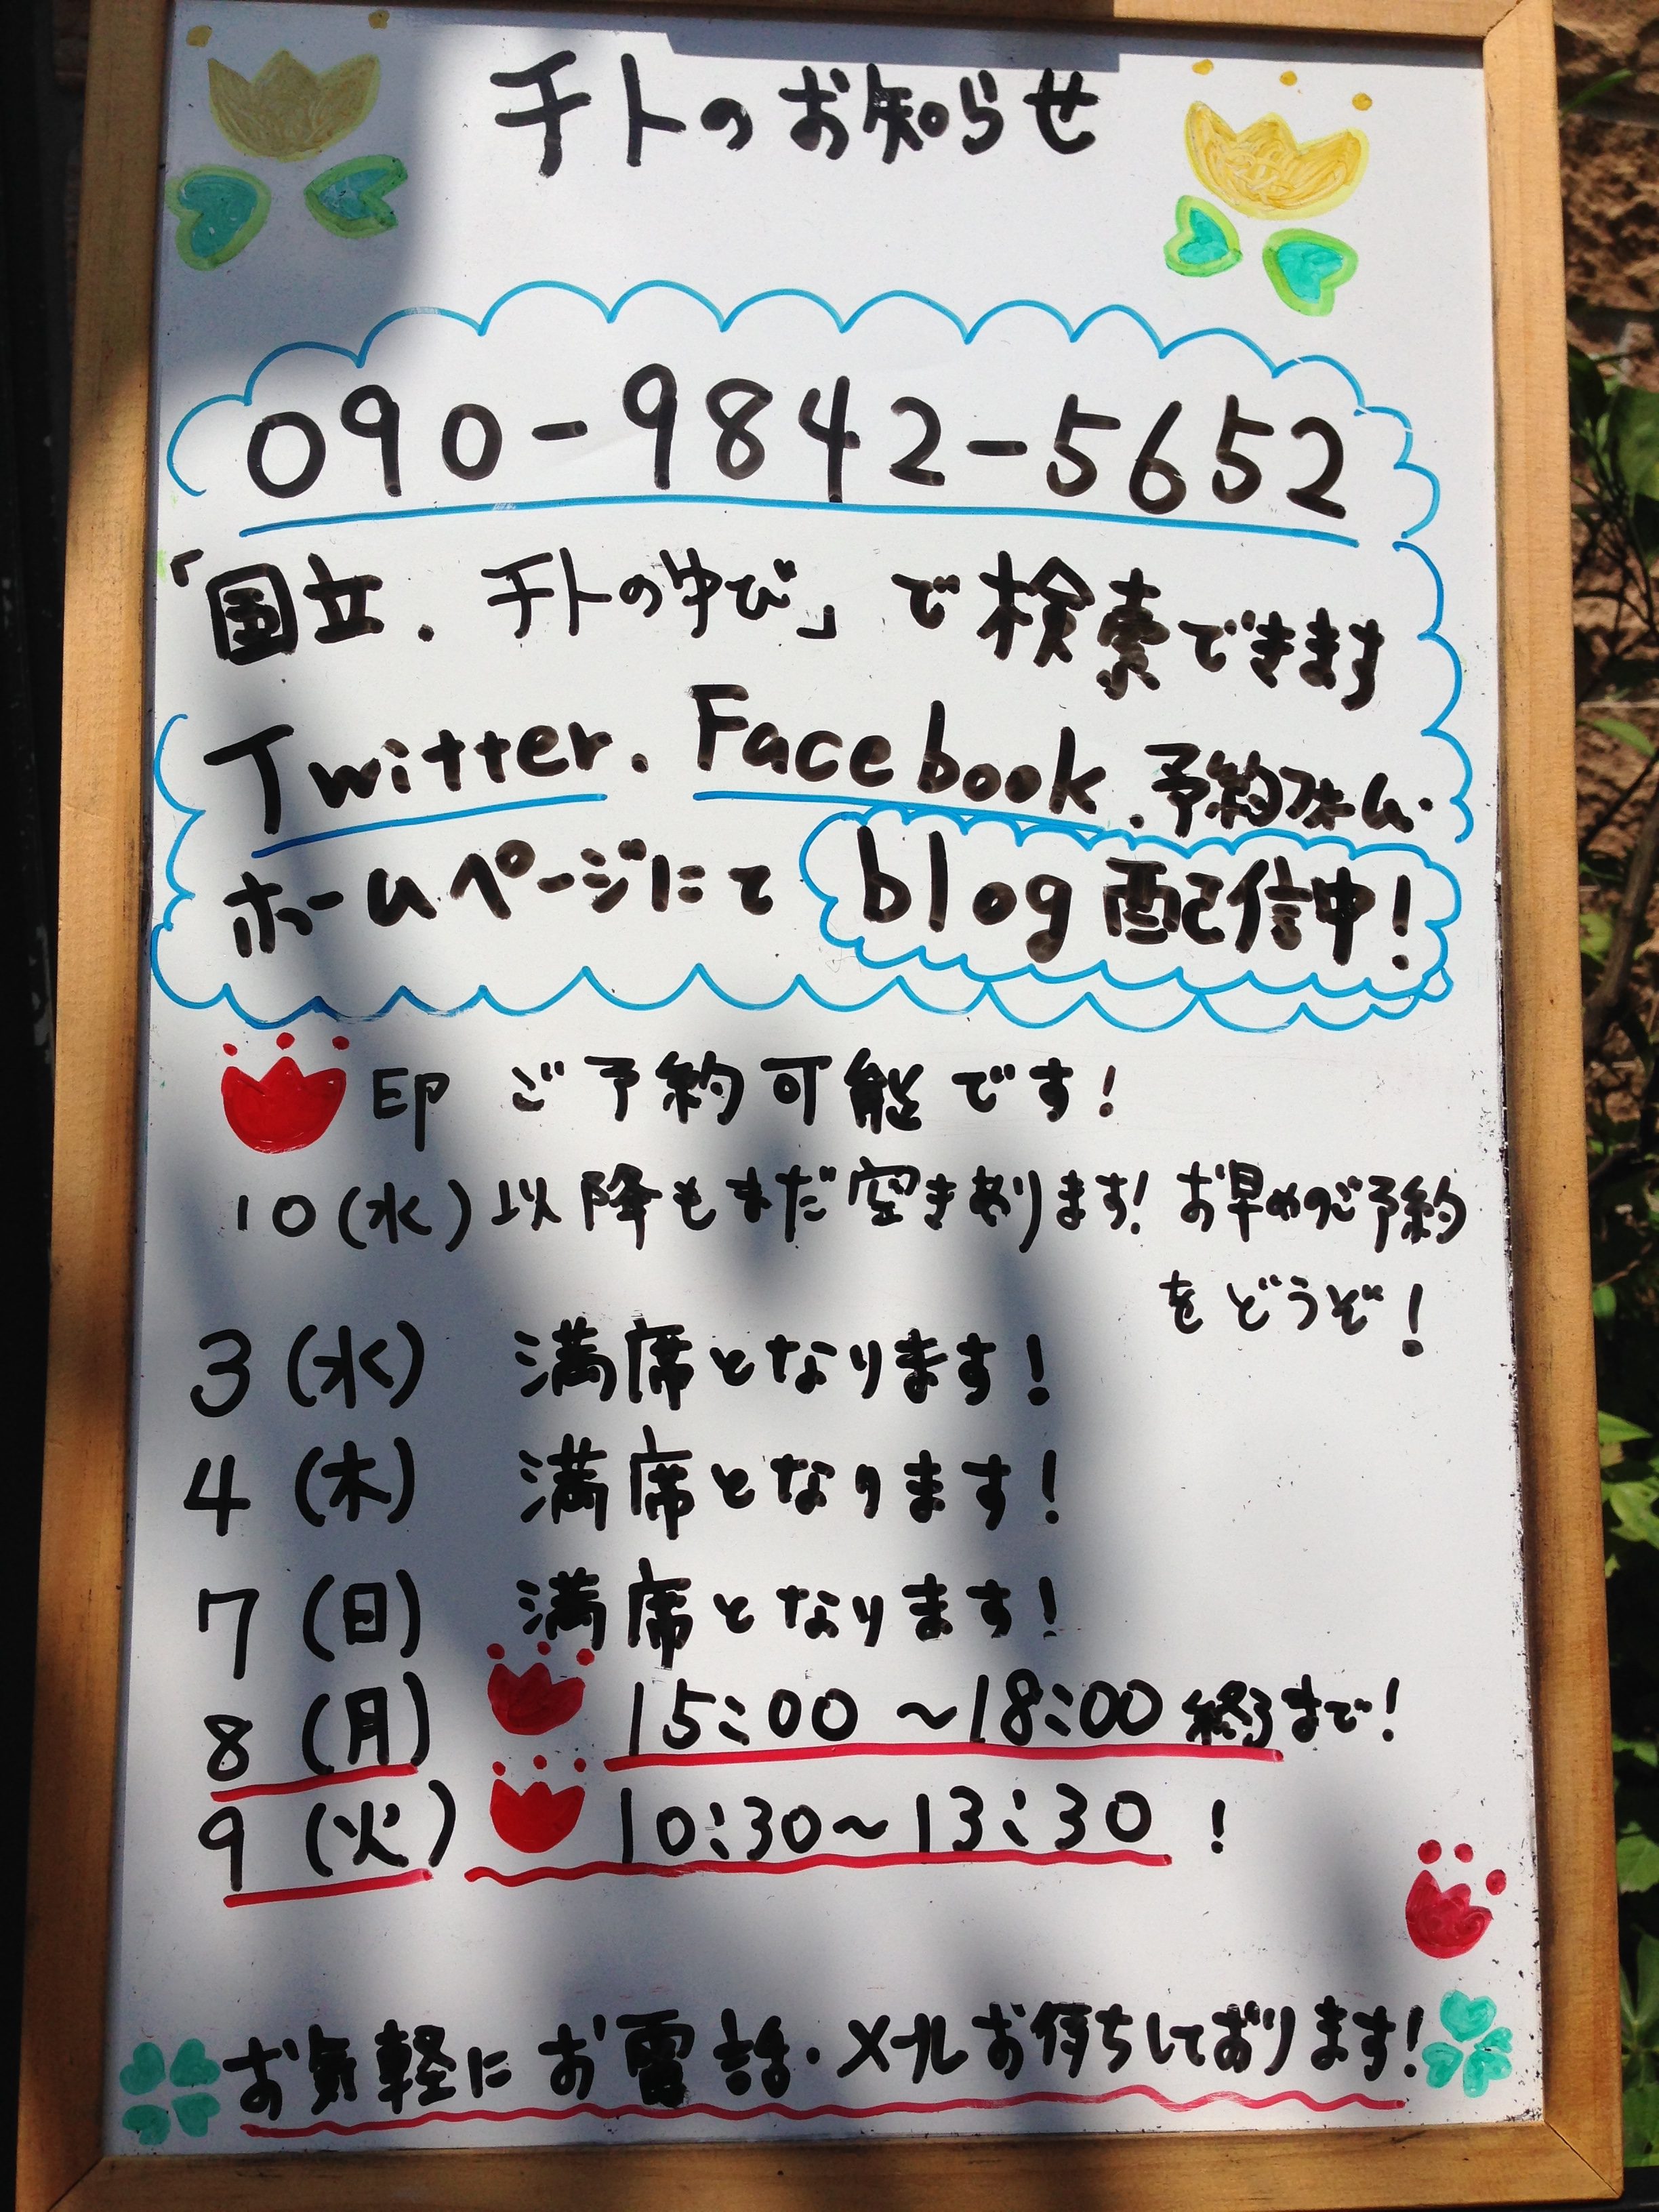 チトのお知らせ
090-9842-5652
「国立.チトのゆび」で検索できます
Twitter.Facebook.予約フォーム.
ホームページにて blog配信中!
印 ご予約可能です!
10(水)以降もまだ空きあります! お早めのご予約
をどうぞ!
3(水) 満席となります!
4(木) 満席となります!
7(日) 満席となります!
8(月) 15:00～18:00終了まで!
9(火) 10:30～13:30!
お気軽にお電話・メールお待ちしております!